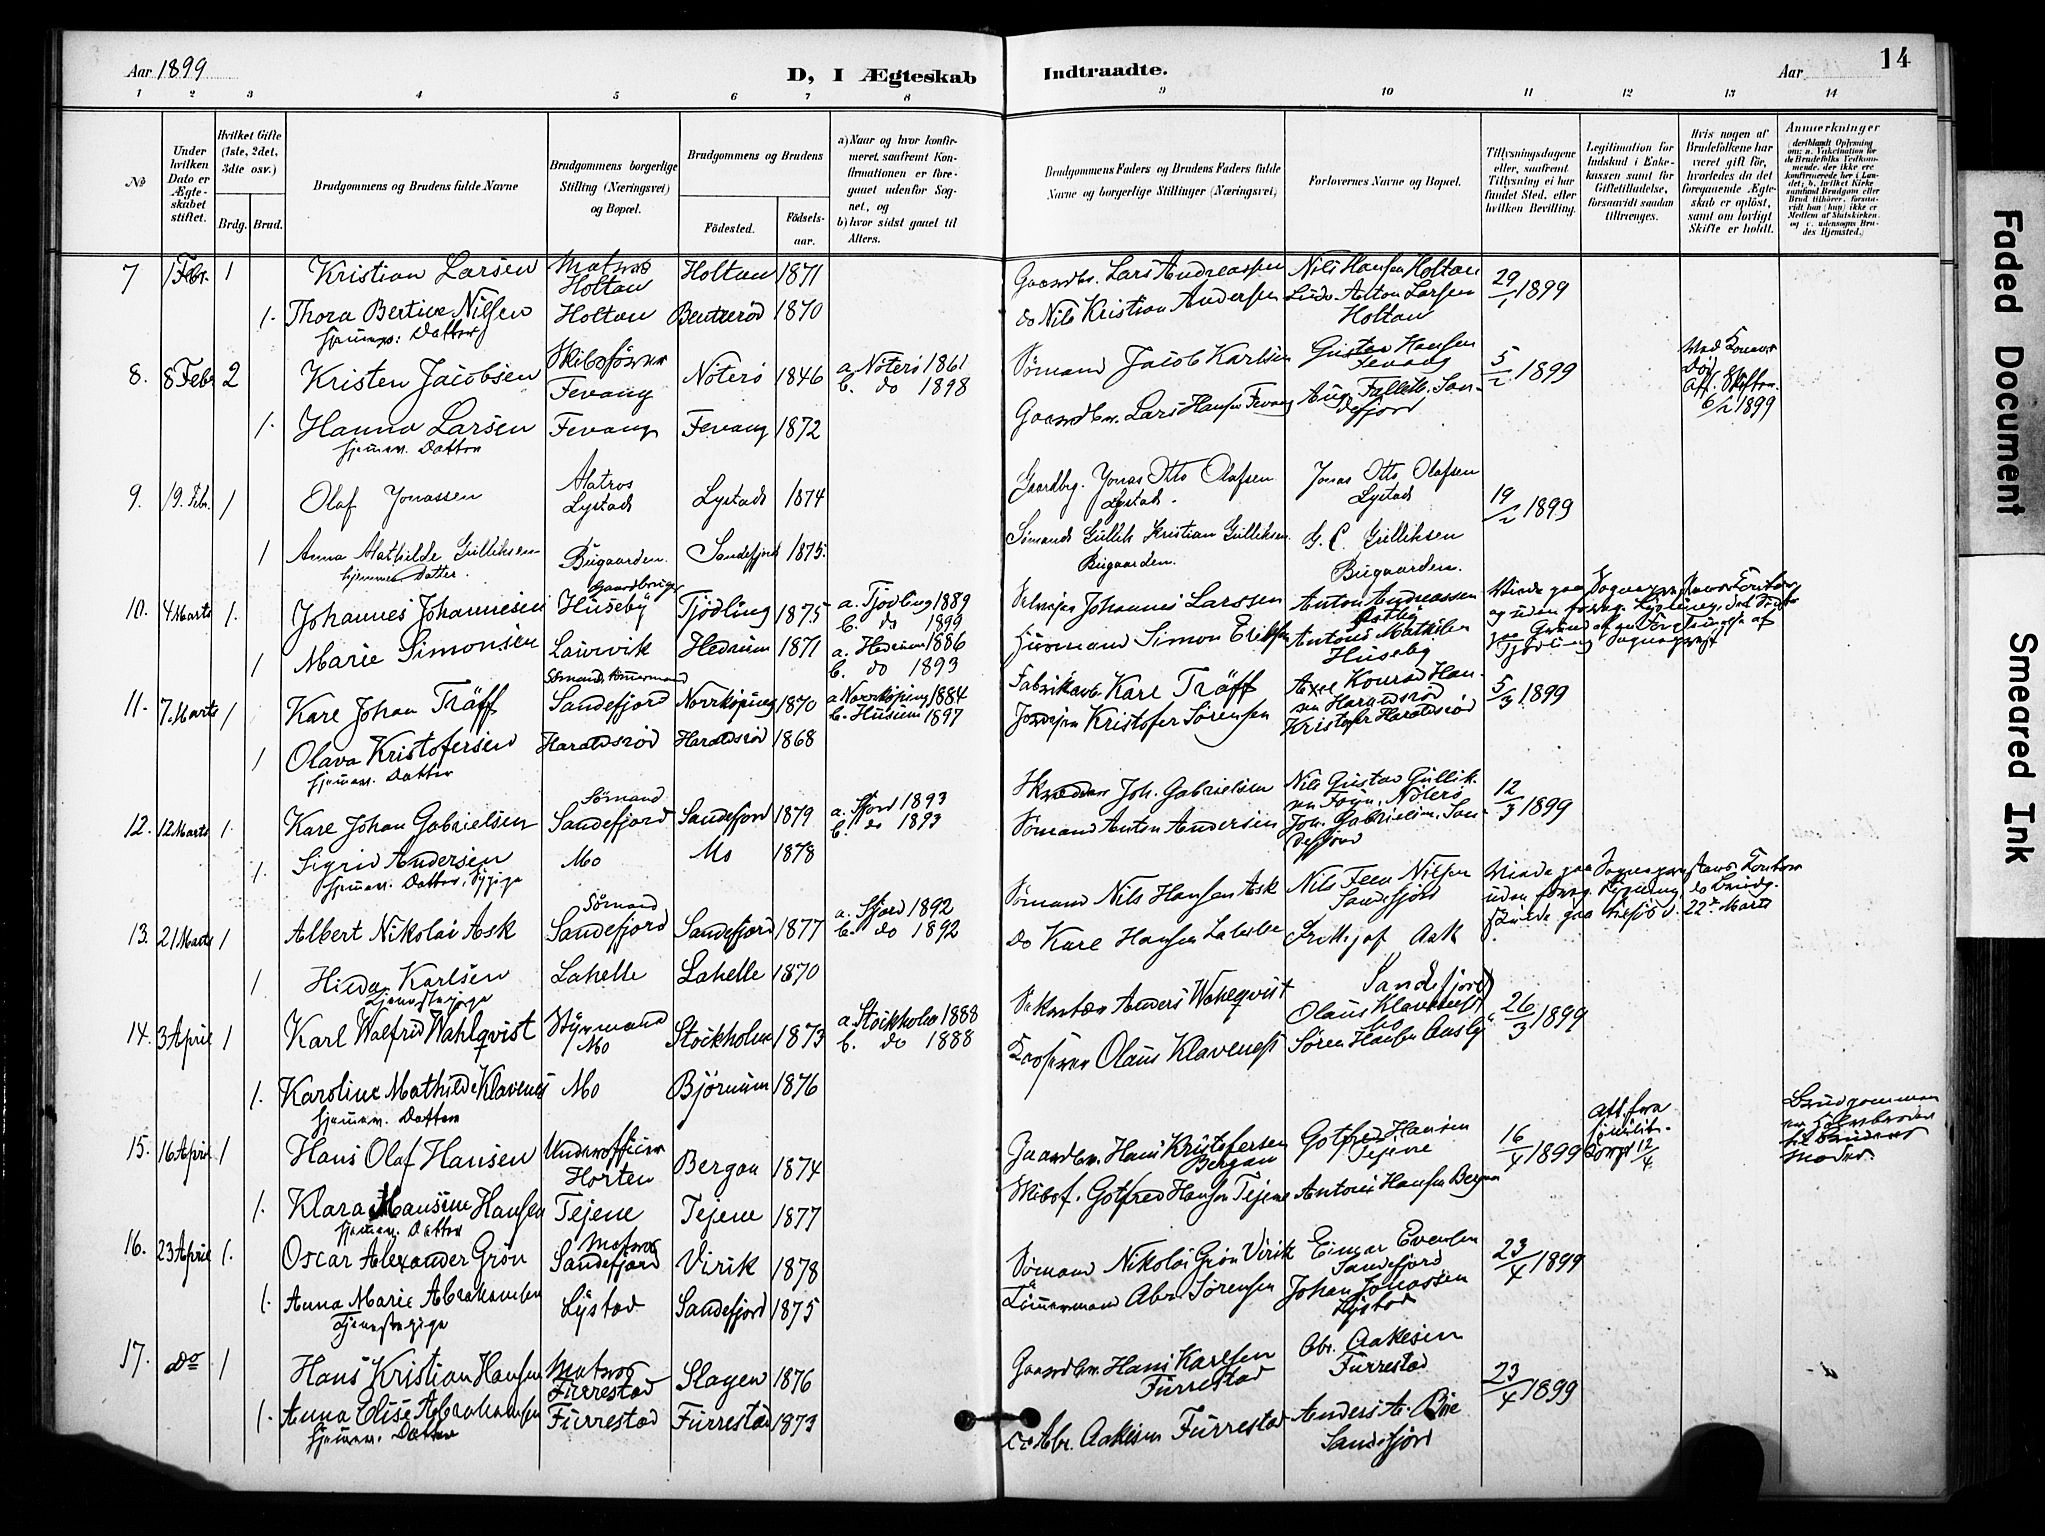 Aar 1899
D, I Ægteskab Indtraadte.
Aar
14
1 2 3 4 5 6 7 8 9 10 11 12 13 14
No
Under hvilken Dato er Ægteskabet stiftet.
Hvilket Gifte (1ste, 2det, 3die osv.)
Brdg. Brud.
Brudgommens og Brudens fulde Navne
Brudgommens borgerlige Stilling (Næringsvei) og Bopæl.
Brudgommens og Brudens
Fødested. Fødselsaar.
a) Naar og hvor konfirmeret, saafremt Konfirmationen er foregaaet udenfor Sognet, og
b) hvor sidst gaaet til Alters.
Brudgommens Faders og Brudens Faders fulde Navne og borgerlige Stillinger (Næringsvei)
Forlovernes Navne og Bopæl.
Tillysningsdagene eller, saafremt Tillysning ei har fundet Sted, efter hvilken Bevilling.
Legitimation for Indskud i Enkekassen samt for Giftetilladelse, forsaavidt saadan tiltrænges.
Hvis nogen af Brudefolkene har været gift før, hvorledes da det foregaaende Ægteskab er opløst, samt om lovligt Skifte er holdt.
Anmerkninger
7 1 Febr. 1 Kristian Larsen Matros Holtan Holtan 1871 Gaardbr. Lars Andreassen Nils Hansen Holtan 29/1 1899
1. Thora Bertine Nilsen Holtan Bentserød 1870 do Nils Kristian Andersen Anton Larsen Holtan
hjemmev. Datter
8. 8 Febr 2 Kristen Jacobsen Skibsfører Fevang Nøterø 1846 a. Nøterø 1861 b. do 1898 Sømand Jacob Karlsen Gustav Hansen Fevang 5/2 1899 6/2 1899
1. Hanna Larsen Fevang Fevang 1872 Gaardbr. Lars Hansen Fevang Sandefjord
hjemmev. Datter
9. 19. Febr. 1 Olaf Jonassen Matros Lystad Lystad 1874 Gaardbrg. Jonas Otto Olafsen Lystad. Jonas Otto Olafsen Lystad 19/2 1899
1 Anna Mathilde Gulliksen Bugaarden. Sandefjord 1875. Sømand Gullik Kristian Gulliksen Bugaarden. G. C. Gulliksen Bugaarden.
hjemmev. Datter.
10. 4 Marts 1. Johannes Johannesen Gaardbruger Huseby Tjødling 1875 a. Tjødling 1889 b. do 1899 Selveier Johannes Larssen Anton Andreassen
1 Marie Simonsen Laurvik Hedrum 1871 a. Hedrum 1886 b. do 1893 Husmand Simon Eriksen Antoni Mathilde Huseby
11. 7. Marts 1 Karl Johan Träff Sandefjord Norrköping 1870 a Norrköping 1884 b. Husum 1897 Fabrikarb. Karl Träff Axel Konrad Hansen Haraldsrød 5/3 1899
1 Olava Kristofersen Haraldsrød Haraldsrød 1868 Kristofer Sørensen Kristofer Haraldsrød
hjemmev. Datter
12. 12 Marts 1. Karl Johan Gabrielsen Sømand Sandefjord Sandefjord 1879 a. Sfjord 1893 b. do 1893 Skrædder Joh. Gabrielsen Nils Gustav Gulliksen Føyn, Nøterø 12/3 1899
1. Sigrid Andersen Mo Mo 1878 Sømand Anton Andersen Joh. Gabrielsen, Sandefjord
hjemmev. Datter, Sypige
13. 21 Marts 1 Albert Nikolai Ask Sømand Sandefjord Sandefjord 1877 a. Sfjord 1892 b. do 1892 Sømand Nils Hansen Ask Nils Teen Nilsen Sandefjord
1 Hilda Karlsen Lahelle Lahelle 1870 do Karl Hansen Lahelle Fritjof Ask Sandefjord
Tjenestepige
14. 3 April 1 Karl Walfrid Wahlqvist Styrmand Mo Stockholm 1873 a. Stockholm 1888 b. do 1888 Anders Wahlqvist Olaus Klaveness Mo 26/3 1899
1. Karoline Mathilde Klaveness Mo Bjørnum 1876 Olaus Klaveness Søren Hansen
hjemmev. Datter
15. 16 April 1 Hans Olaf Hansen Underofficier Horten Bergan 1874 Gaardbr. Hans Kristofersen Bergan Gotfred Hansen Tejene 16/4 1899
1. Klara Hansine Hansen Tejene Tejene 1877 Skibsf. Gotfred Hansen Tejene Antoni Hansen Bergan
hjemmev. Datter
16. 23 April 1. Oscar Alexander Grøn Matros Sandefjord Virik 1878 Sømand Nikolai Grøn Virik Einar Evensen Sandefjord 23/4 1899
1. Anna Marie Abrahamsen Lystad Sandefjord 1875 Tømmermand Abr. Sørensen Johan Jonassen Lystad
Tjenestepige
17. do 1 Hans Kristian Hansen Matros Furrestad Slagen 1876 Gaardbr. Hans Karlsen Furrestad Abr. Aakesen Furrestad 23/4 1899
1. Anna Elise Abrahamsen Furrestad Furrestad 1873 do Abr. Aakesen Furrestad Anders A. Bøe Sandefjord
hjemmev. Datter
Faded Document
Smeared Ink